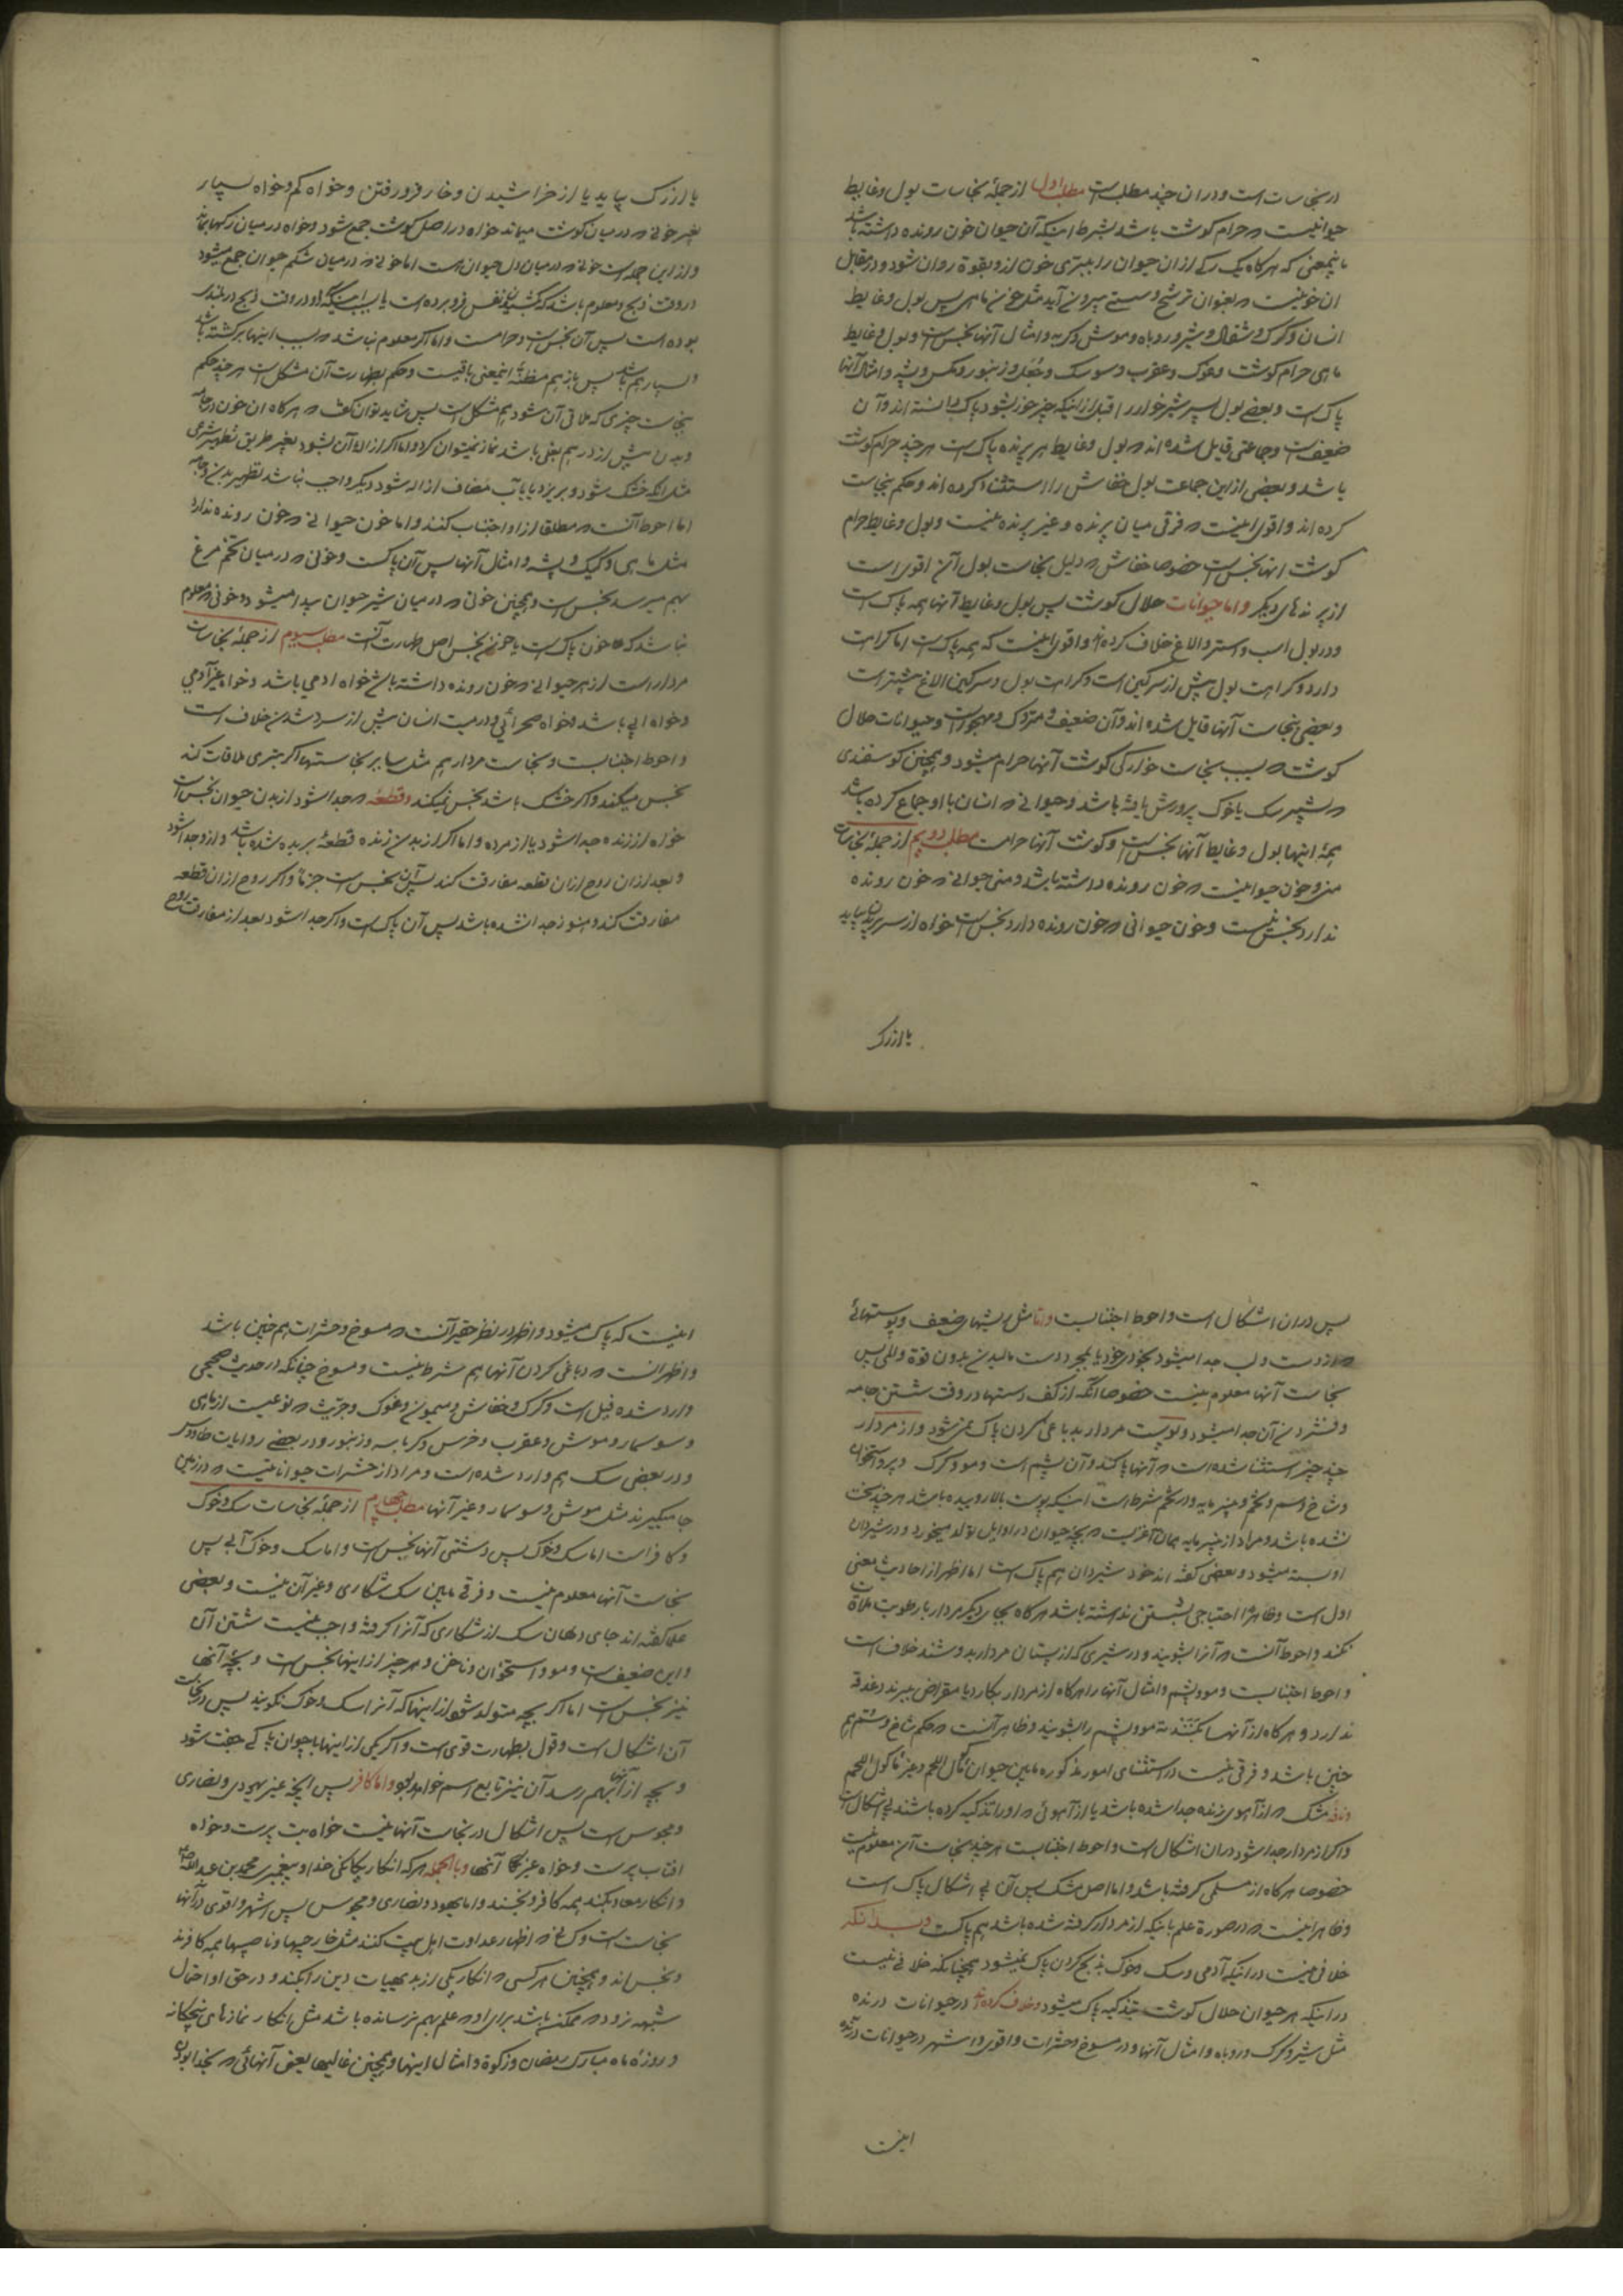 در نجاسات است و در ان چند مطلب است مطلب اول از جملهٔ نجاسات بول و غایط
حیوانیست که حرام کوشت باشد بشرط اینکه آن حیوان خون رونده داشته باشد
باینمعنی که هرکاه یک رکی از ان حیوان را ببری خون ازو بقوة روان شود و در مقابل
ان خونیست که بعنوان ترشح و سستی بیرون آید مثل خون ماهی پس بول و غایط
انسان و کرک و شغال و شیر و روباه و موش و کربه و امثال آنها نجس است و بول و غایط
ماهی حرام کوشت و غوک و عقرب و سوسک و جُعَل و زنبور و مکس و پشه و امثال آنها
پاک است و بعضی بول پسر شیرخوار را قبل از اینکه چیزخور بشود پاک دانسته اند و آن
ضعیف است و جماعتی قایل شده اند که بول و غایط هر پرنده پاک است هر چند حرام کوشت
باشد و بعضی از این جماعت بول خفاش را استثنا کرده اند و حکم بنجاست
کرده اند و اقوی اینست که فرقی میان پرنده و غیر پرنده نیست و بول و غایط حرام
کوشت انها نجس است خصوصا خفاش که دلیل نجاست بول آن اقوی است
از پرندهای دیکر و اما حیوانات حلال کوشت پس بول و غایط آنها همه پاک است
و در بول اسب و استر و الاغ خلاف کرده اند و اقوی اینست که همه پاک است اما کراهت
دارد و کراهت بول بیش از سرکین است و کراهت بول و سرکین الاغ بیشتر است
و بعضی بنجاست آنها قایل شده اند و آن ضعیف و متروک و مهجور است و حیوانات حلال
کوشت که بسبب نجاست خوارکی کوشت آنها حرام میشود و همچنین کوسفندی
که بشیر سک یا خوک پرورش یافته باشد و حیوانی که انسان با او جماع کرده باشد
همهٔ اینها بول و غایط آنها نجس است و کوشت آنها حرامست مطلب دویم از جملهٔ نجاسات
منی و خون حیوانیست که خون رونده داشته باشد و منی حیوانی که خون رونده
ندارد نجس نیست و خون حیوانی که خون رونده دارد نجس است خواه از سر بریدن بیاید
یا از رک
یا از رک بیاید یا از خراشیدن و خار فرو رفتن و خواه کم و خواه بسیار
بغیر خونی که در میان کوشت میماند خواه در اصل کوشت جمع شود و خواه در میان رکها بماند
و از این جمله است خونی که در میان دل حیوان است اما خونی که در میان شکم حیوان جمع میشود
در وقت ذبح و معلوم باشد که بکشیدن نفس فرو برده است یا بسبب اینکه سر او در وقت ذبح در بلندی
بوده است پس آن نجس است و حرامست و اما اکر معلوم نباشد که بسبب اینها برکشته باشد
و بسیار هم باشد پس باز هم مظنهٔ اینمعنی باقیست و حکم بطهارت آن مشکل است هر چند حکم
بنجاست چیزی که ملاقی آن شود هم مشکل است پس شاید توان کفت که هرکاه ان خون در جامه
و بدن بیش از درهم بغلی باشد نماز نمیتوان کرد و اما اکر ازالهٔ آن بشود بغیر طریق تطهیر شرعی
مثل انکه خشک شود و بریزد یا بآب مضاف ازاله شود دیکر واجب نباشد تطهیر بدن و جامه
اما احوط آنست که مطلقا از او اجتناب کنند و اما خون حیوانی که خون رونده ندارد
مثل ماهی و کیک و پشه و امثال آنها پس آن پاکست و خونی که در میان تخم مرغ
بهم میرسد نجس است و همچنین خونی که در میان شیر حیوان پیدا میشود و خونی که معلوم
نباشد که خون پاک است یا خون نجس اصل طهارت آنست مطلب سیوم از جملهٔ نجاسات
مردار است از هر حیوانی که خون رونده داشته باشد خواه ادمی باشد و خواه غیر آدمی
و خواه ابی باشد و خواه صحرائی و در میت انسان پیش از سرد شدن خلاف است
و احوط اجتنابست و نجاست مردار هم مثل سایر نجاستهاست اکر بتری ملاقات کند
نجس میکند و اکر خشک باشد نجس نمیکند و قطعهٔ که جدا شود از بدن حیوان نجس است
خواه از زنده جدا شود یا از مرده و اما اکر از بدن زنده قطعهٔ بریده شده باشد و ازو جدا نشود
و بعد از ان روح از ان قطعه مفارقت کند پس آن نجس است جزمًا و اکر روح از ان قطعه
مفارقت کند و هنوز جدا نشده باشد پس آن پاک است و اکر جدا شود بعد از مفارقت روح
پس در ان اشکال است و احوط اجتنابست و اما مثل ریشهای ضعیف و پوستهائی
که از دست و لب جدا میشود بخودی خود یا بمجرد دست مالیدن بدون قوة و المی پس
نجاست آنها معلوم نیست خصوصا آنکه از کف دستها در وقت شستن جامه
و فشردن آن جدا میشود و پوست مردار بدباغی کردن پاک نمیشود و از مردار
چند چیز استثنا شده است که آنها پاکند و آن پشم است و مو و کرک و پر و استخوان
و شاخ و سم و تخم و پنیر مایه و در تخم شرط است اینکه پوست بالا روییده باشد هر چند سخت
نشده باشد و مراد از پنیر مایه همان آغزیست که بچهٔ حیوان در اوایل تولد میخورد و در شیردان
او بسته میشود و بعضی کفته اند خود شیردان هم پاک است اما اظهر از احادیث معنی
اول است و ظاهرا احتیاجی بشستن نداشته باشد هرکاه بجای دیکر مردار با رطوبت ملاقات
نکند و احوط آنست که آنرا بشویند و در شیری که از پستان مردار بدوشند خلاف است
و احوط اجتنابست و مو و پشم و امثال آنها را هرکاه از مردار بکارد یا مقراض ببرند دغدغه
ندارد و هرکاه از آنها بکنند ته مو و پشم را بشویند و ظاهر آنست که حکم شاخ و سم هم
چنین باشد و فرقی نیست در استثنای امور مذکوره مابین حیوان ماکول اللحم و غیر ماکول اللحم
و نافهٔ مشک که از آهوی زنده جدا شده باشد یا از آهوئی که او را تذکیه کرده باشند بی اشکال است
و اکر از مردار جدا شود در ان اشکال است و احوط اجتنابست هر چند نجاست آن معلوم نیست
خصوصا هرکاه از مسلمی کرفته باشد و اما اصل مشک پس آن بی اشکال پاک است
و ظاهر اینست که در صورة علم باینکه از مردار کرفته شده باشد هم پاکست و بدانکه
خلافی نیست در اینکه آدمی و سک و خوک بذبح کردن پاک نمیشود همچنانکه خلافی نیست
در اینکه هر حیوان حلال کوشت بتذکیه پاک میشود و خلاف کرده اند در حیوانات درنده
مثل شیر و کرک و روباه و امثال آنها و در مسوخ و حشرات و اقوی و اشهر در حیوانات درنده
اینست
اینست که پاک میشود و اظهر در نظر حقیر آنست که مسوخ و حشرات هم چنین باشد
و اظهر انست که دباغی کردن آنها هم شرط نیست و مسوخ چنانکه در حدیث صحیحی
وارد شده فیل است و کرک و خفاش و میمون و غوک و جرّیث که نوعیست از ماهی
و سوسمار و موش و عقرب و خرس و کرباسه و زنبور و در بعضی روایات طاووس
و در بعضی سک هم وارد شده است و مراد از حشرات حیواناتیست که در زمین
جا میکیرند مثل موش و سوسمار و غیر آنها مطلب چهارم از جملهٔ نجاسات سک و خوک
و کافر است اما سک و خوک پس دشتی آنها نجس است و اما سک و خوک آبی پس
نجاست آنها معلوم نیست و فرقی مابین سک شکاری و غیر آن نیست و بعضی
علما کفته اند جای دهان سک از شکاری که آنرا کرفته واجب نیست شستن آن
و این ضعیف است و مو و استخوان و ناخن و هر چیز از اینها نجس است و بچهٔ آنها
نیز نجس است اما اکر بچه متولد شود از اینها که آنرا سک و خوک نکویند پس در نجاست
آن اشکال است و قول بطهارت قوی است و اکر یکی از اینها با حیوان پاکی جفت شود
و بچه از آنها بهم رسد آن نیز تابع اسم خواهد بود و اما کافر پس انچه غیر یهودی و نصاری
و مجوس است پس اشکال در نجاست آنها نیست خواه بت پرست و خواه
افتاب پرست و خواه غیر آنها و بالجمله هرکه انکار یکانکی خدا و پیغمبری محمد بن عبدالله ص
و انکار معاد بکند همه کافر و نجسند و اما یهود و نصاری و مجوس پس اشهر و اقوی در آنها
نجاست است و کسانی که اظهار عداوت اهل بیت کنند مثل خارجیها و ناصبیها همه کافرند
و نجس اند و همچنین هر کسی که انکار یکی از بدیهیات دین را بکند و در حق او احتمال
شبهه نرود که ممکن باشد برای او که علم بهم نرسانده باشد مثل انکار نمازهای پنجکانه
و روزهٔ ماه مبارک رمضان و زکوة و امثال اینها و همچنین غالیها یعنی آنهائی که بخدا بودن